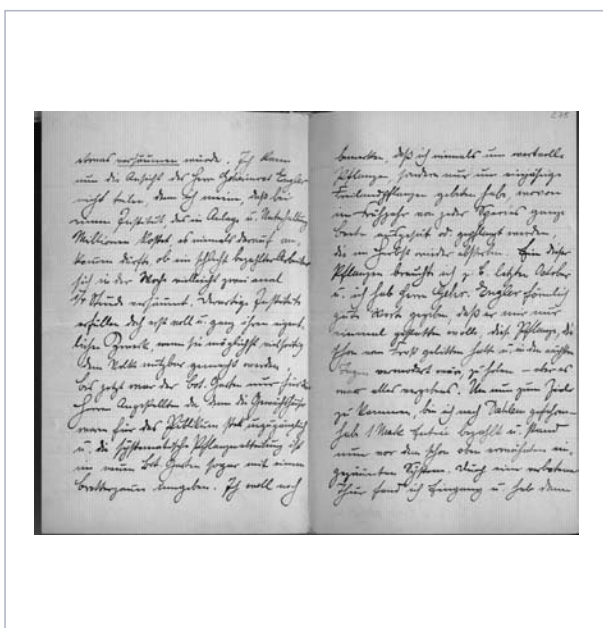 etwas versäumen würde. Ich kann
nun die Ansicht des Herrn Geheimrat Engler
nicht teilen, denn ich meine, daß bei
einem Institut, das in Anlage u. Unterhaltung
Millionen kostet, es niemals darauf an-
kommen dürfte, ob ein schlecht bezahlter Arbeiter
sich in der Woche vielleicht zwei mal
¼ Stunde versäumt. Derartige Institute
erfüllen doch erst voll u. ganz ihren eigent-
lichen Zweck, wenn sie möglichst vielseitig
dem Volke nutzbar gemacht werden
bis jetzt war der bot. Garten nur für die
Herrn Angestellten da denn die Gewächshäuser
waren für das Publikum stets unzugänglich
u. die systematische Pflanzenabteilung ist
im neuen bot. Garten sogar mit einem
Bretterzaun umgeben. Ich will noch
275
bemerken, daß ich niemals um wertvolle
Pflanzen, sondern nur um einjährige
Freilandpflanzen gebeten habe, wovon
im Frühjahr von jeder Species ganze
Beete ausgesät od. gepflanzt werden,
die im Herbst wieder absterben. Ein dieser
Pflanzen brauchte ich z. B. letzten October
u. ich hab Herrn Geheimr. Engler förmlich
gute Worte gegeben, daß er mir nur
einmal gestatten wolle, diese Pflanze, die
schon vom Frost gelitten hatte u. in den nächsten
Tagen vernichtet wär, zu holen – aber es
war alles vergebens. Um nun zum Ziele
zu kommen, bin ich nach Dahlem gefahren
hab 1 Mark Entrée bezahlt u. stand
nun vor dem schon oben erwähnten ein-
gezäunten System. Durch eine verbotene
Thür fand ich Eingang u. hab dann